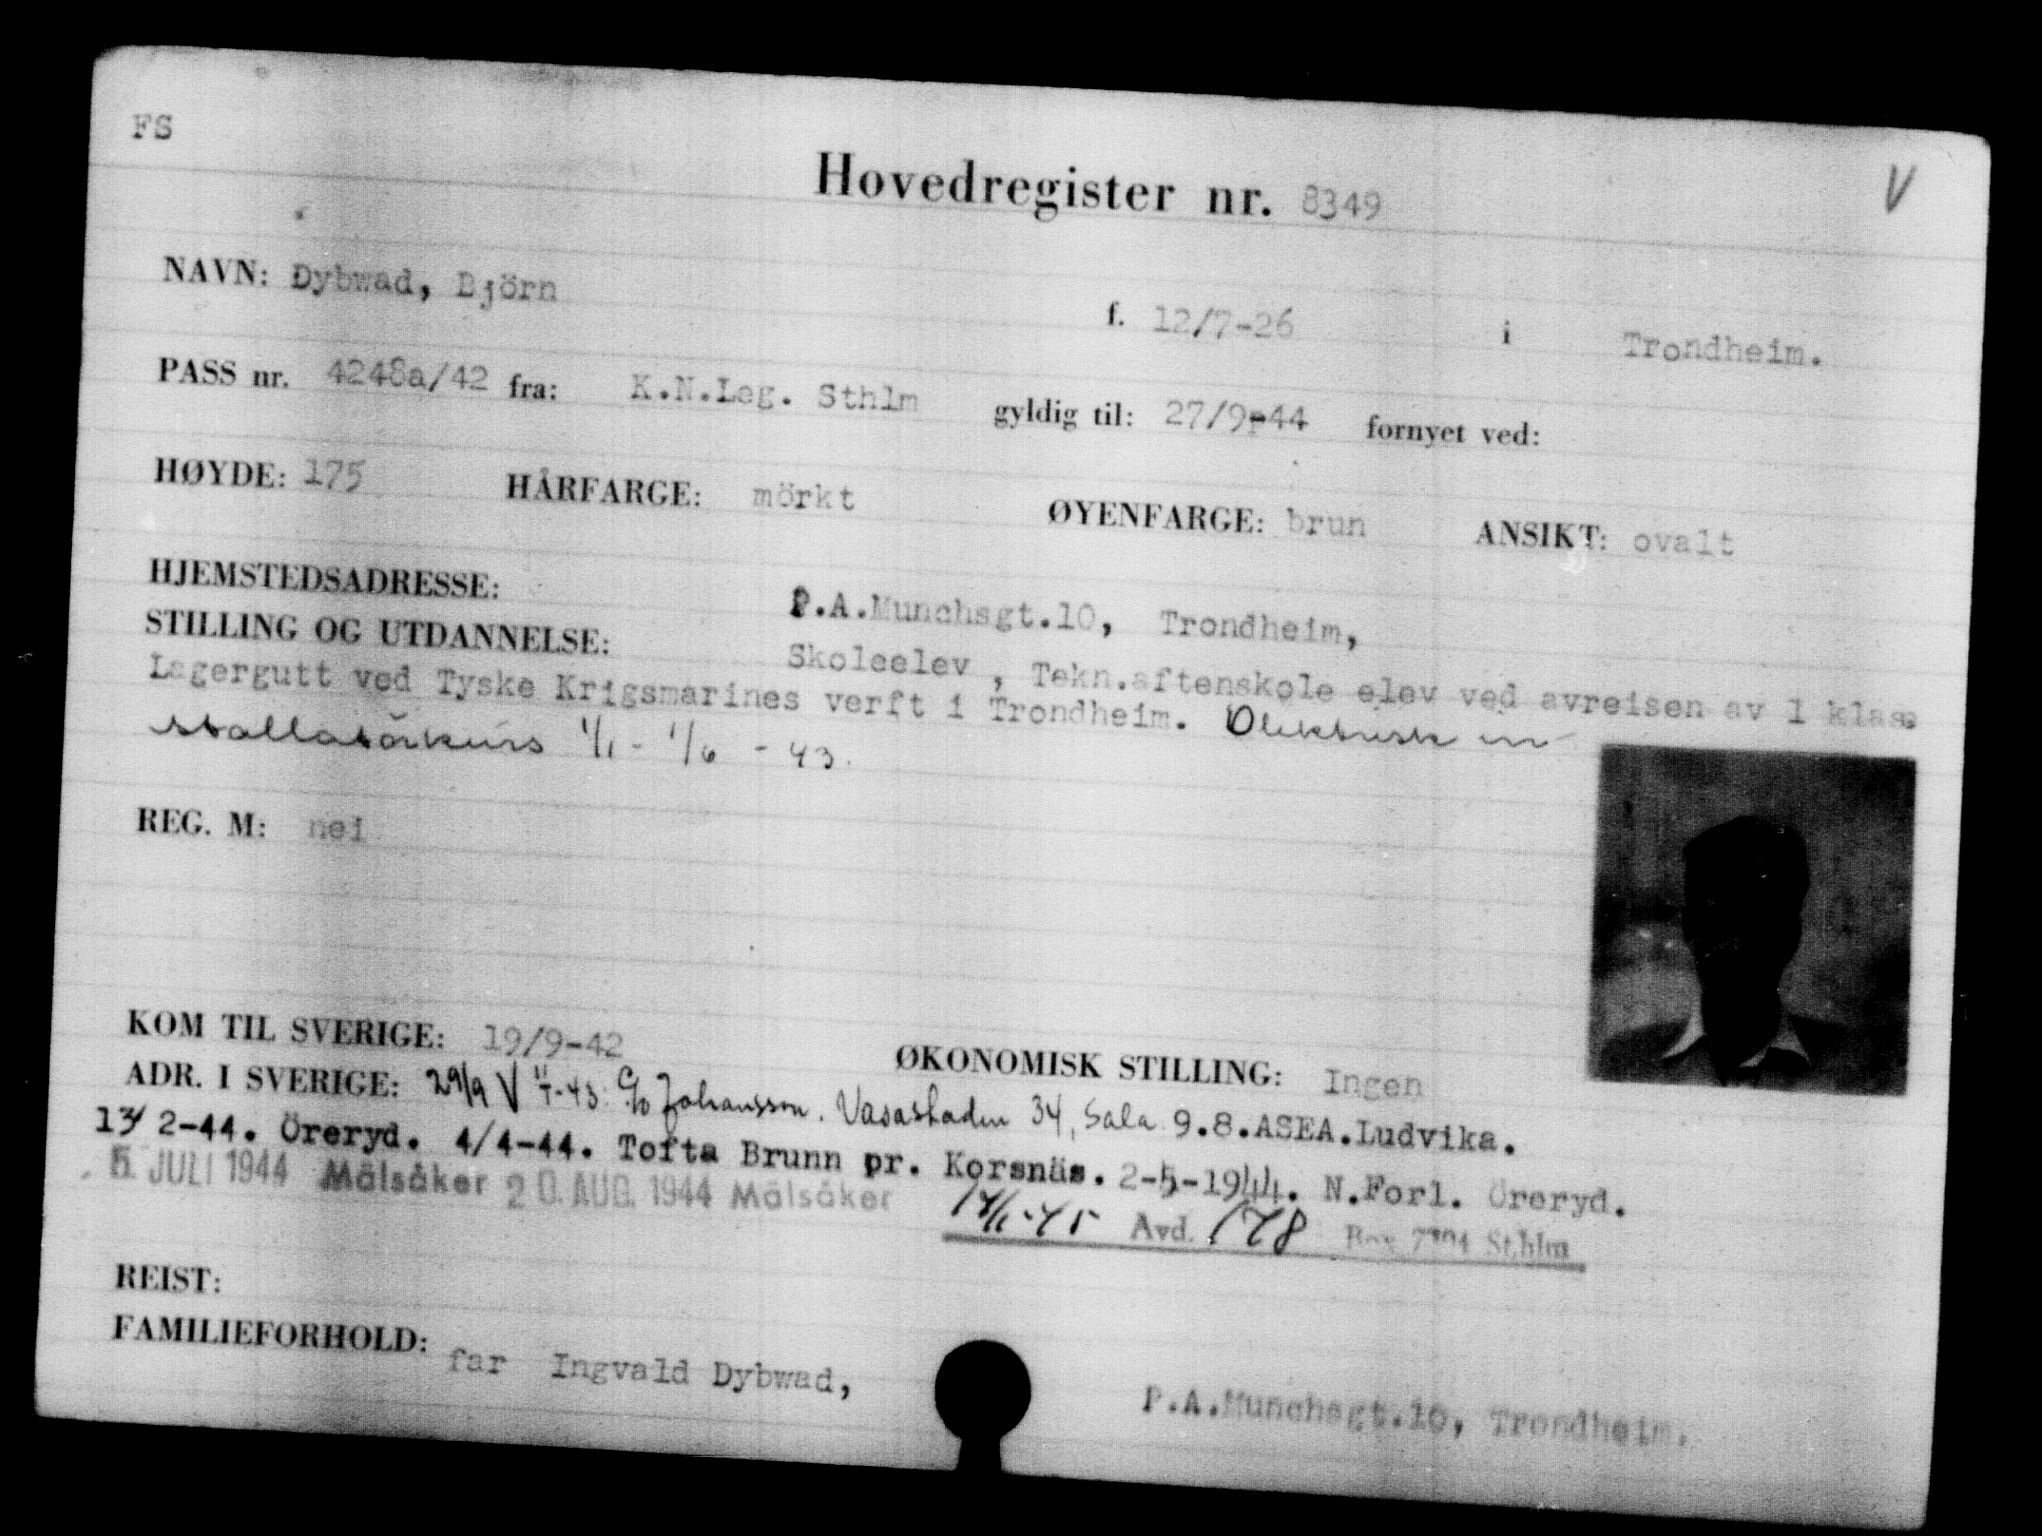 FS
Hovedregister nr. 8349 V
NAVN: Dybwad, Björn f. 12/7-26 i Trondheim.
PASS nr. 4248a/42 fra: K.N.Leg. Sthlm gyldig til: 27/9-44 fornyet ved:
HØYDE: 175 HÅRFARGE: mörkt ØYENFARGE: brun ANSIKT: ovalt
HJEMSTEDSADRESSE: P.A.Munchsgt.10, Trondheim,
STILLING OG UTDANNELSE: Skoleelev , Tekn.aftenskole elev ved avreisen av 1 klas.
Lagergutt ved Tyske Krigsmarines verft i Trondheim. Elektrisk in
stallatörkurs 1/1 - 1/6 - 43.
REG. M: nei
KOM TIL SVERIGE: 19/9-42 ØKONOMISK STILLING: Ingen
ADR. I SVERIGE: 29/9 V -43. c/o Johansson. Vasastaden 34, Sala 9.8.ASEA.Ludvika.
13/ 2-44. Öreryd. 4/4-44. Tofta Brunn pr. Korsnäs. 2-5-1944. N.Forl. Öreryd.
5. JULI 1944 Mälsåker 20. AUG. 1944 Mälsåker
-45 Avd. 178 Box 7394 Sthlm
REIST:
FAMILIEFORHOLD: far Ingvald Dybwad, P.A.Munchsgt.10, Trondheim.